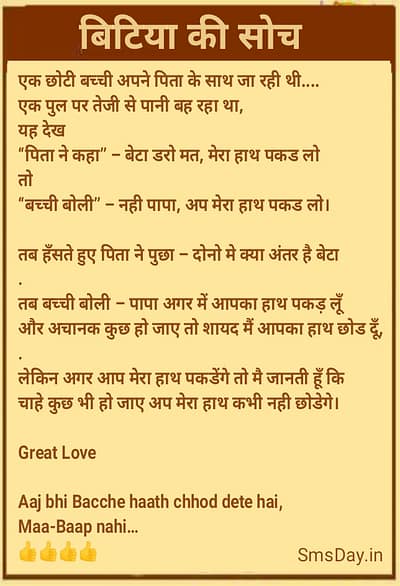 बिटिया की सोच
एक छोटी बच्ची अपने पिता के साथ जा रही थी....
एक पुल पर तेजी से पानी बह रहा था,
यह देख
“पिता ने कहा” – बेटा डरो मत, मेरा हाथ पकड लो
तो
“बच्ची बोली” – नही पापा, अप मेरा हाथ पकड लो।
तब हँसते हुए पिता ने पुछा – दोनो मे क्या अंतर है बेटा
.
तब बच्ची बोली – पापा अगर में आपका हाथ पकड़ लूँ
और अचानक कुछ हो जाए तो शायद मैं आपका हाथ छोड दूँ,
.
लेकिन अगर आप मेरा हाथ पकडेंगे तो मै जानती हूँ कि
चाहे कुछ भी हो जाए अप मेरा हाथ कभी नही छोडेगे।
Great Love
Aaj bhi Bacche haath chhod dete hai,
Maa-Baap nahi...
👍👍👍👍
SmsDay.in